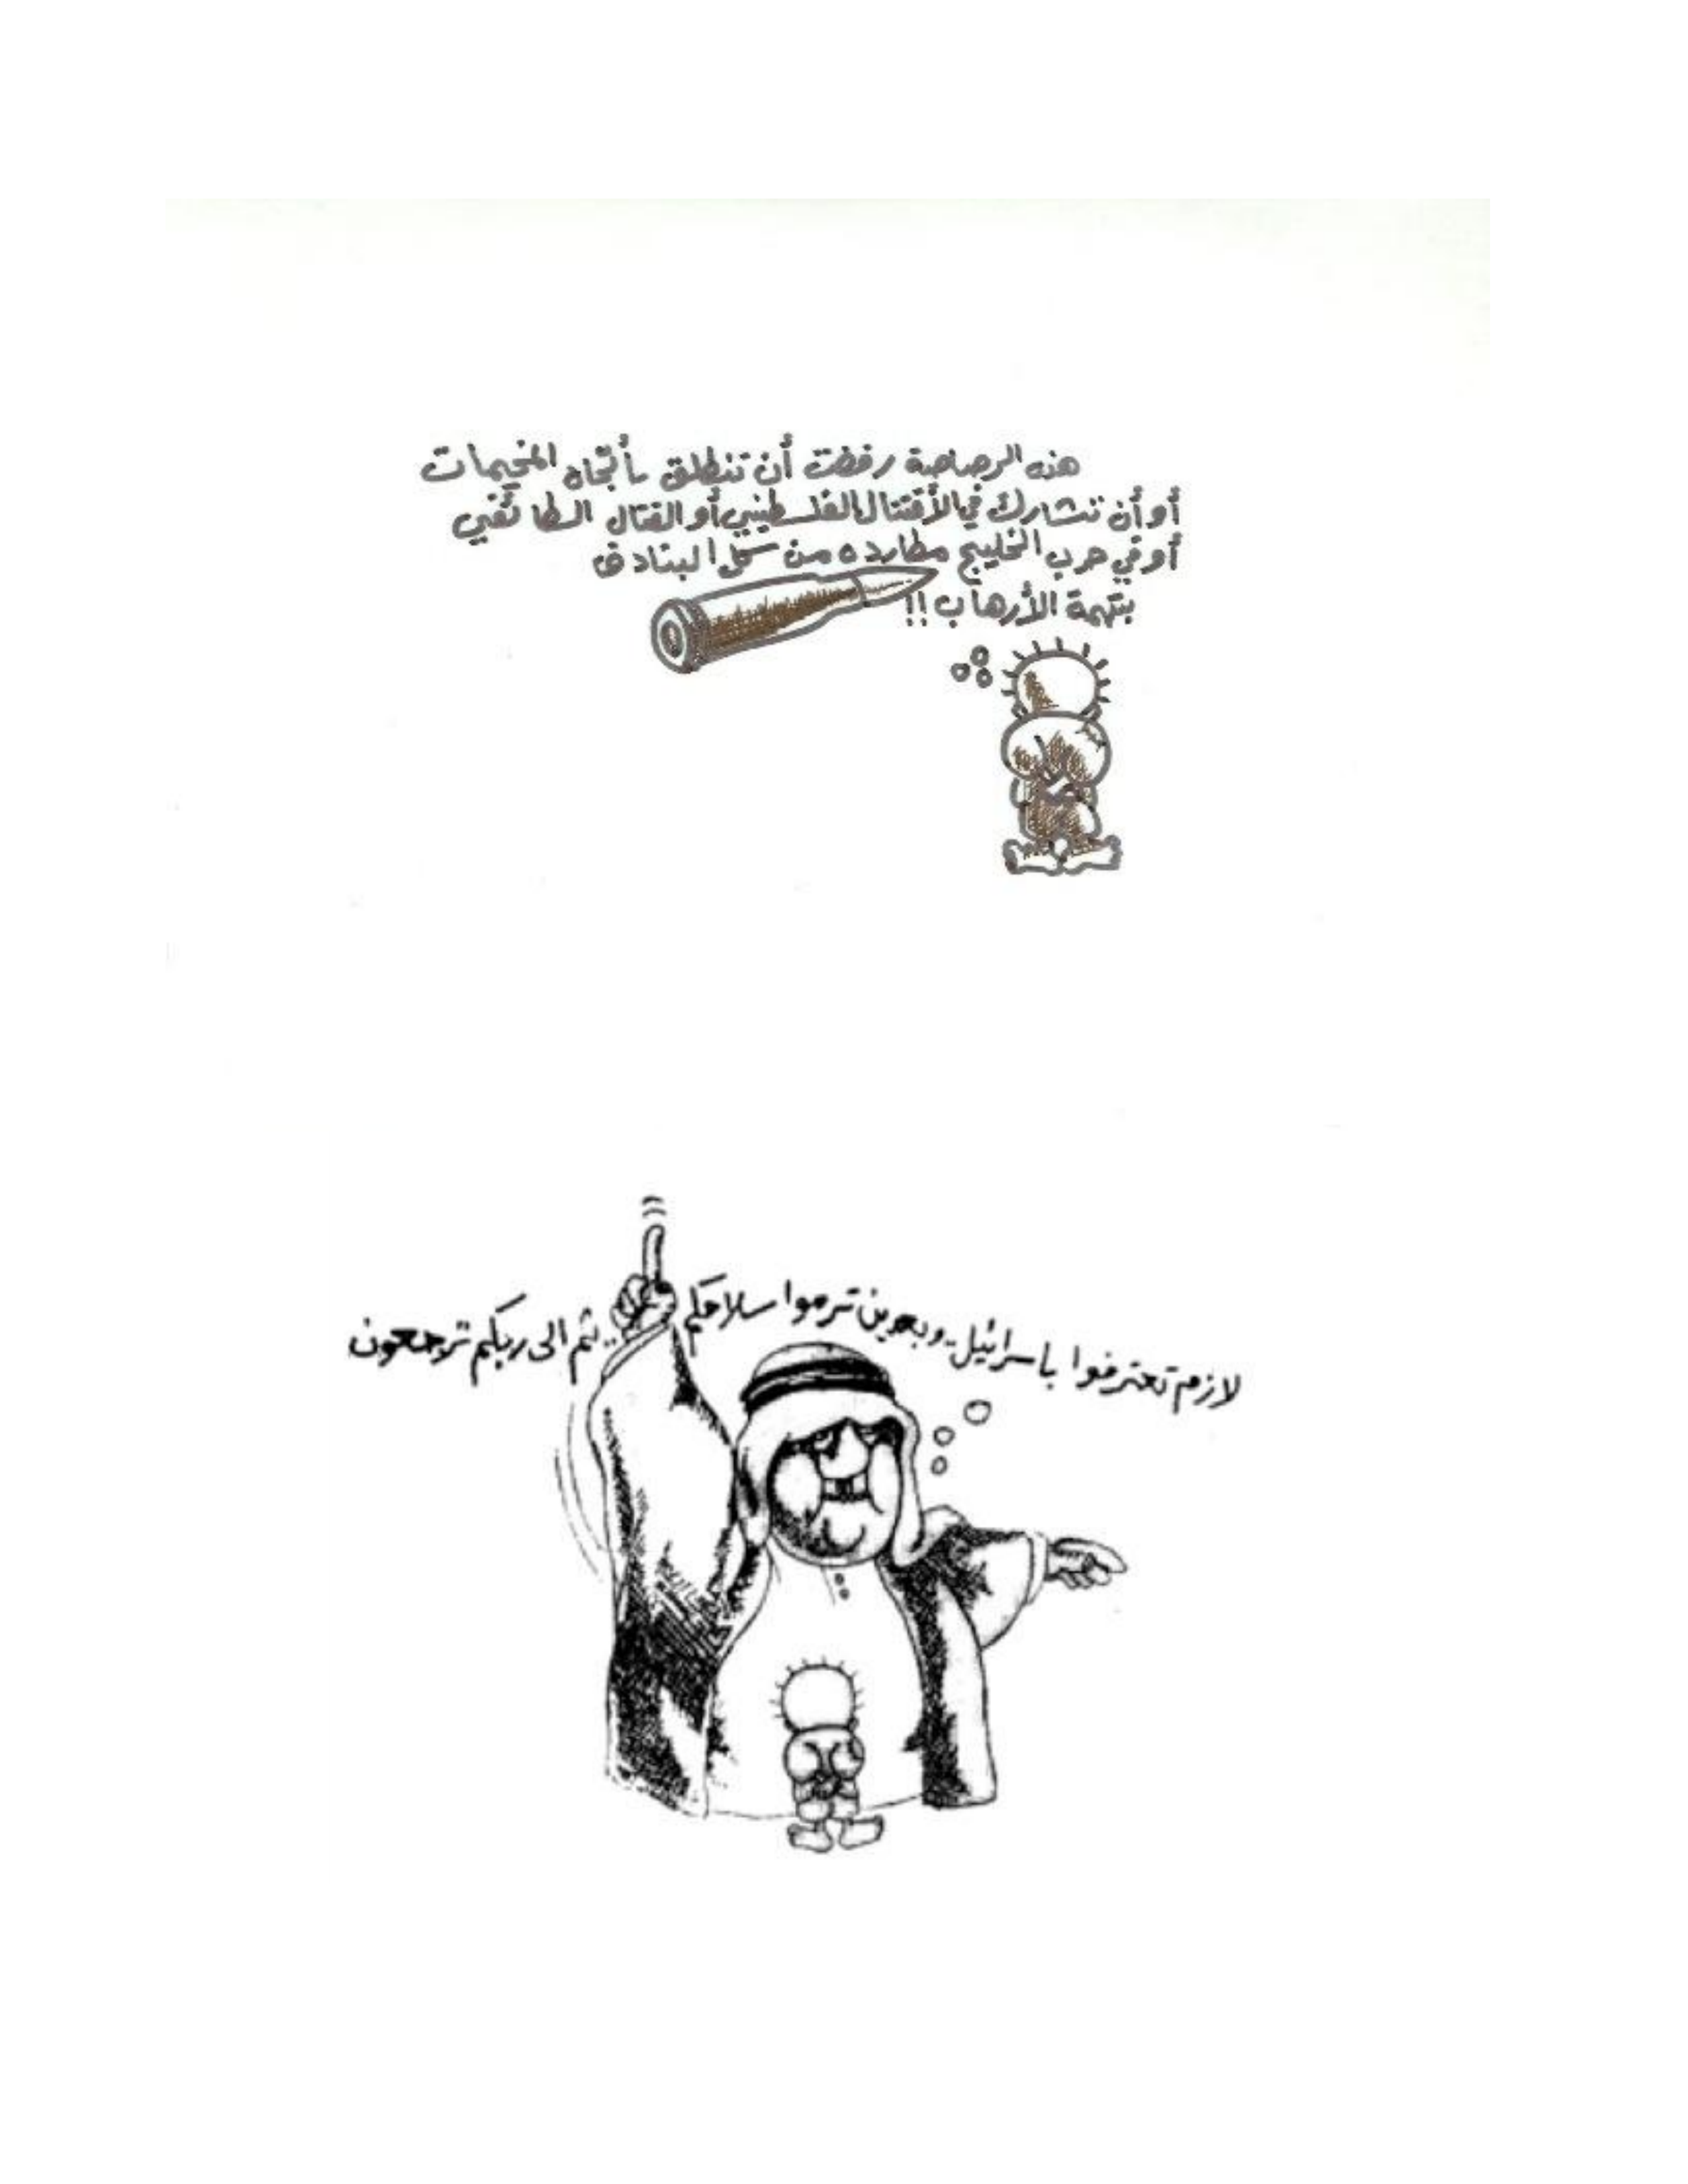 هذه الرصاصة رفضت أن تنطلق بأتجاه المخيمات
أو أن تشارك في الأقتتال الفلسطيني أو القتال الطائفي
أو في حرب الخليج مطارده من كل البنادق
بتهمة الأرهاب!!
لازم تعترفوا باسرائيل.. وبعدين ترموا سلاحكم.. ثم الى ربكم ترجعون